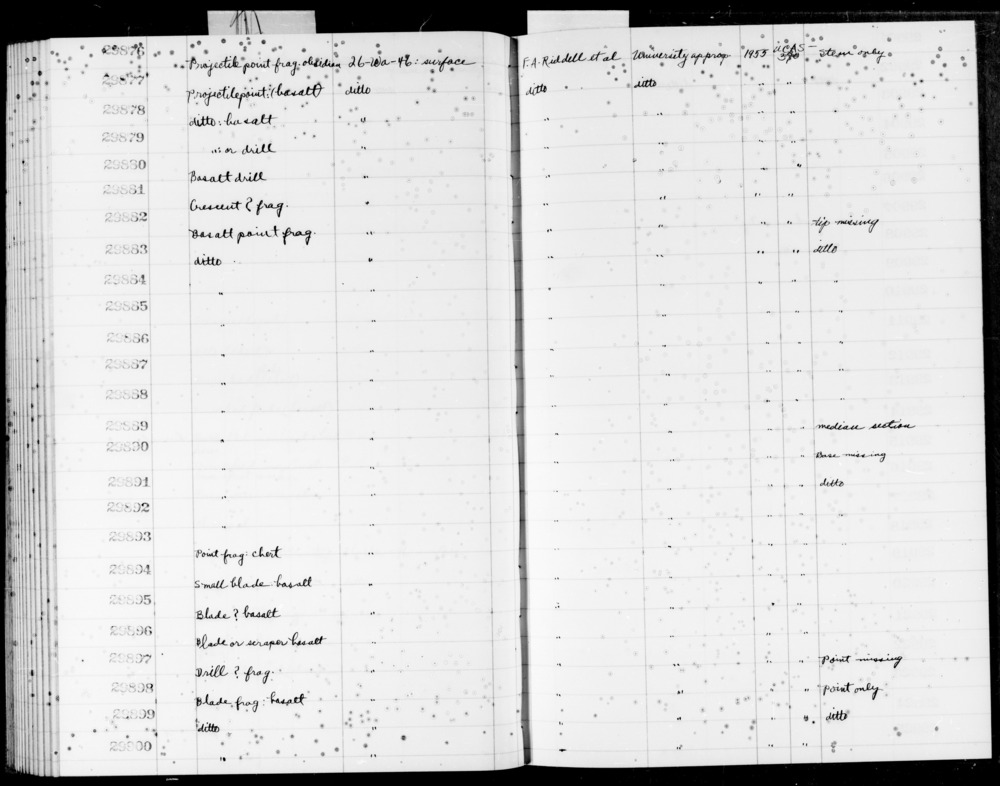 29876 Projectile point frag. obsidian 26-Wa-46: surface F.A. Riddell et al University approp 1953 UCAS-390 Stem only
29877 Projectile point: (basalt) ditto ditto ditto " "
29878 ditto: basalt " " " " " "
29879 ": or drill " " " " "
29880 Basalt drill " " " " "
29881 Crescent ? frag. " " " " "
29882 Basalt point frag. " " " " " tip missing
29883 ditto " " " " " ditto
29884 " " " " " " "
29885 " " " " " " "
29886 " " " " " " "
29887 " " " " " " "
29888 " " " " " " "
29889 " " " " " " median section
29890 " " " " " " Base missing
29891 " " " " " " ditto
29892 " " " " " " "
29893 Point frag: chert " " " " " "
29894 Small blade: basalt " " " " "
29895 Blade ? basalt " " " " "
29896 Blade or scraper basalt " " " " "
29897 Drill ? frag. " " " " " Point missing
29898 Blade frag: basalt " " " " " point only
29899 ditto " " " " " ditto
29900 " " " " " "